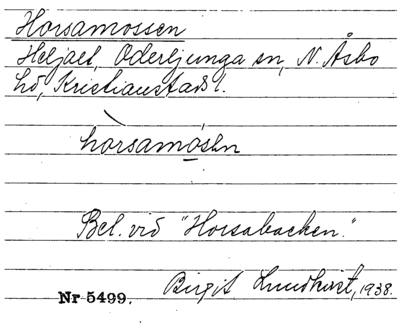 Horsamossen
Heljaet, Oderljunga sn, N. Åsbo
hd, Kristianstads l.
hòrsamósẹn
Bel. vid "Horsabacken."
Birgit Lundkvist, 1938.
Nr 5499.